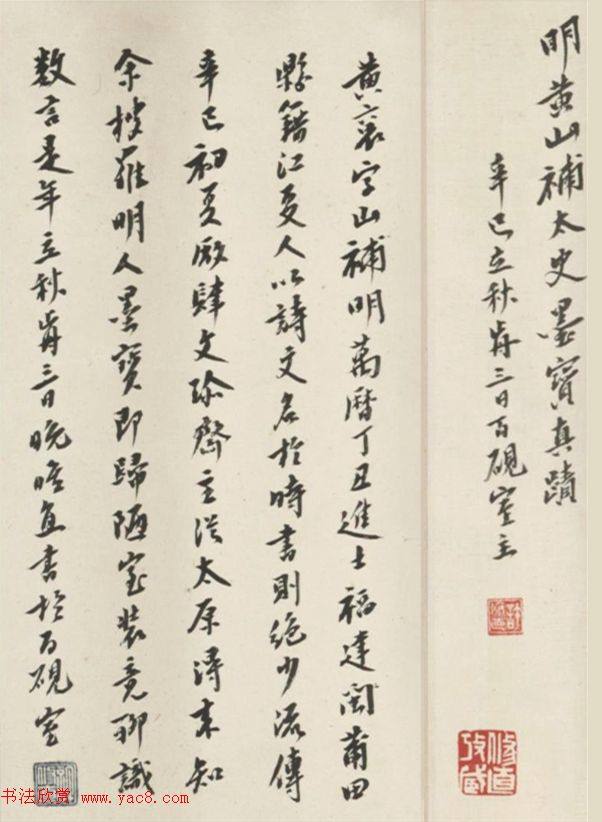 明黄山補太史墨寶真蹟
辛巳立秋前三日百硯室主
黄襄字山補明萬曆丁丑進士福建閩莆田
縣籍江夏人以詩文名於時書則絶少流傳
辛巳初夏廠肆文珍齋主從太原得来知
余搜羅明人墨寶即歸陋室装竟聊識
数言是年立秋前三日晚 直書於百硯室
书法欣赏 www.yac8.com